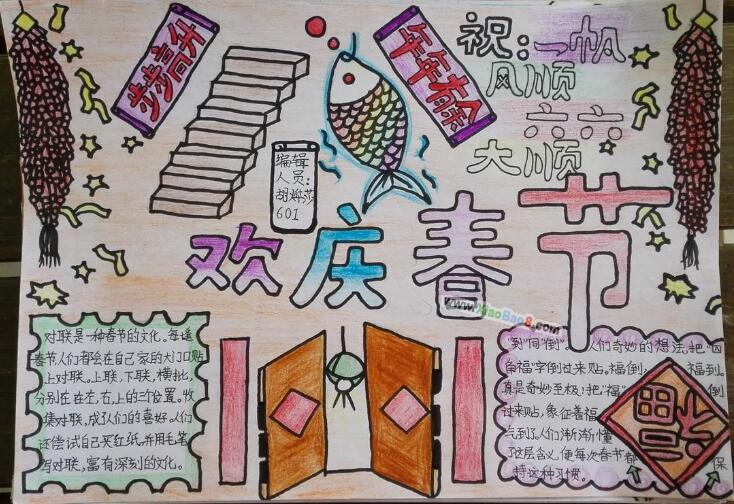 步步高升
年年有余
祝:一帆
风顺
六六
大顺
编辑
人员:
601
欢庆春节
www.QiaoBao8.com
对联是一种春节的文化。每逢
春节人们都会在自己家的大门口贴
上对联。上联,下联,横批,
分别在在左,右,上的三个位置。收
集对联,成了人们的喜好。人们
还尝试自己买红纸,并用毛笔
写对联,富有深刻的文化。
"到"同"倒"。人们奇妙的想法,把"四
角福"字倒过来贴。福倒,福到。
真是奇妙至极;把"福"倒
过来贴,象征着福
气到了,人们渐渐懂
了这层含义,使每次春节都保
持这种习惯。
福